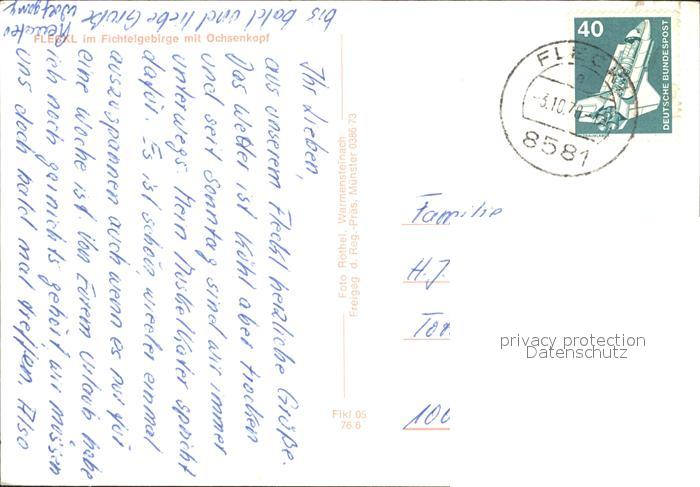 FLECKL im Fichtelgebirge mit Ochsenkopf
Ihr Lieben,
aus unserem Fleckl herzliche Grüße.
Das Wetter ist kühl aber trocken
und seit Sonntag sind wir immer
unterwegs. Mein Muskelkater spricht
dafür. Es ist schön, wieder einmal
auszuspannen auch wenn es nur für
eine Woche ist. Von Eurem Urlaub habe
ich noch garnichts gehört, wir müssen
uns doch bald mal treffen. Also
bis bald und liebe Grüße
Wolfgang
Foto Röthel, Warmensteinach
Freigeg. d. Reg.-Präs. Münster 0386/73
Flkl 05
76 6
40
DEUTSCHE BUNDESPOST
FLECKL
-3.10.7
8581
Familie
H.J.
100
privacy protection
Datenschutz